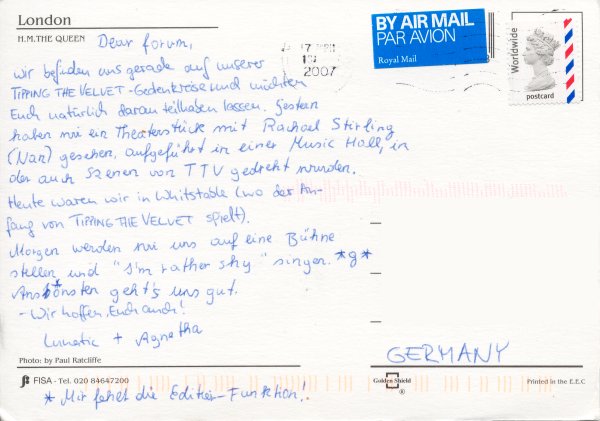 London
H.M.THE QUEEN
Dear forum,
wir befinden uns gerade auf unserer
TIPPING THE VELVET - Gedenkreise und möchten
Euch natürlich daran teilhaben lassen. Gestern
haben wir ein Theaterstück mit Rachael Stirling
(Nan) gesehen, aufgeführt in einer Music Hall, in
der auch Szenen von TTV gedreht wurden.
Heute waren wir in Whitstable (wo der An-
fang von TIPPING THE VELVET spielt).
Morgen werden wir uns auf eine Bühne
stellen und "I'm rather shy" singen. *g*
Ans*önsten geht's uns gut.
- Wir hoffen, Euch auch!
Lunatic + Agnetha
Photo: by Paul Ratcliffe
FISA - Tel. 020 84647200
* Mir fehlt die Editier-Funktion!
2007
BY AIR MAIL
PAR AVION
Royal Mail
Worldwide
postcard
GERMANY
Golden Shield
®
Printed in the E.E.C